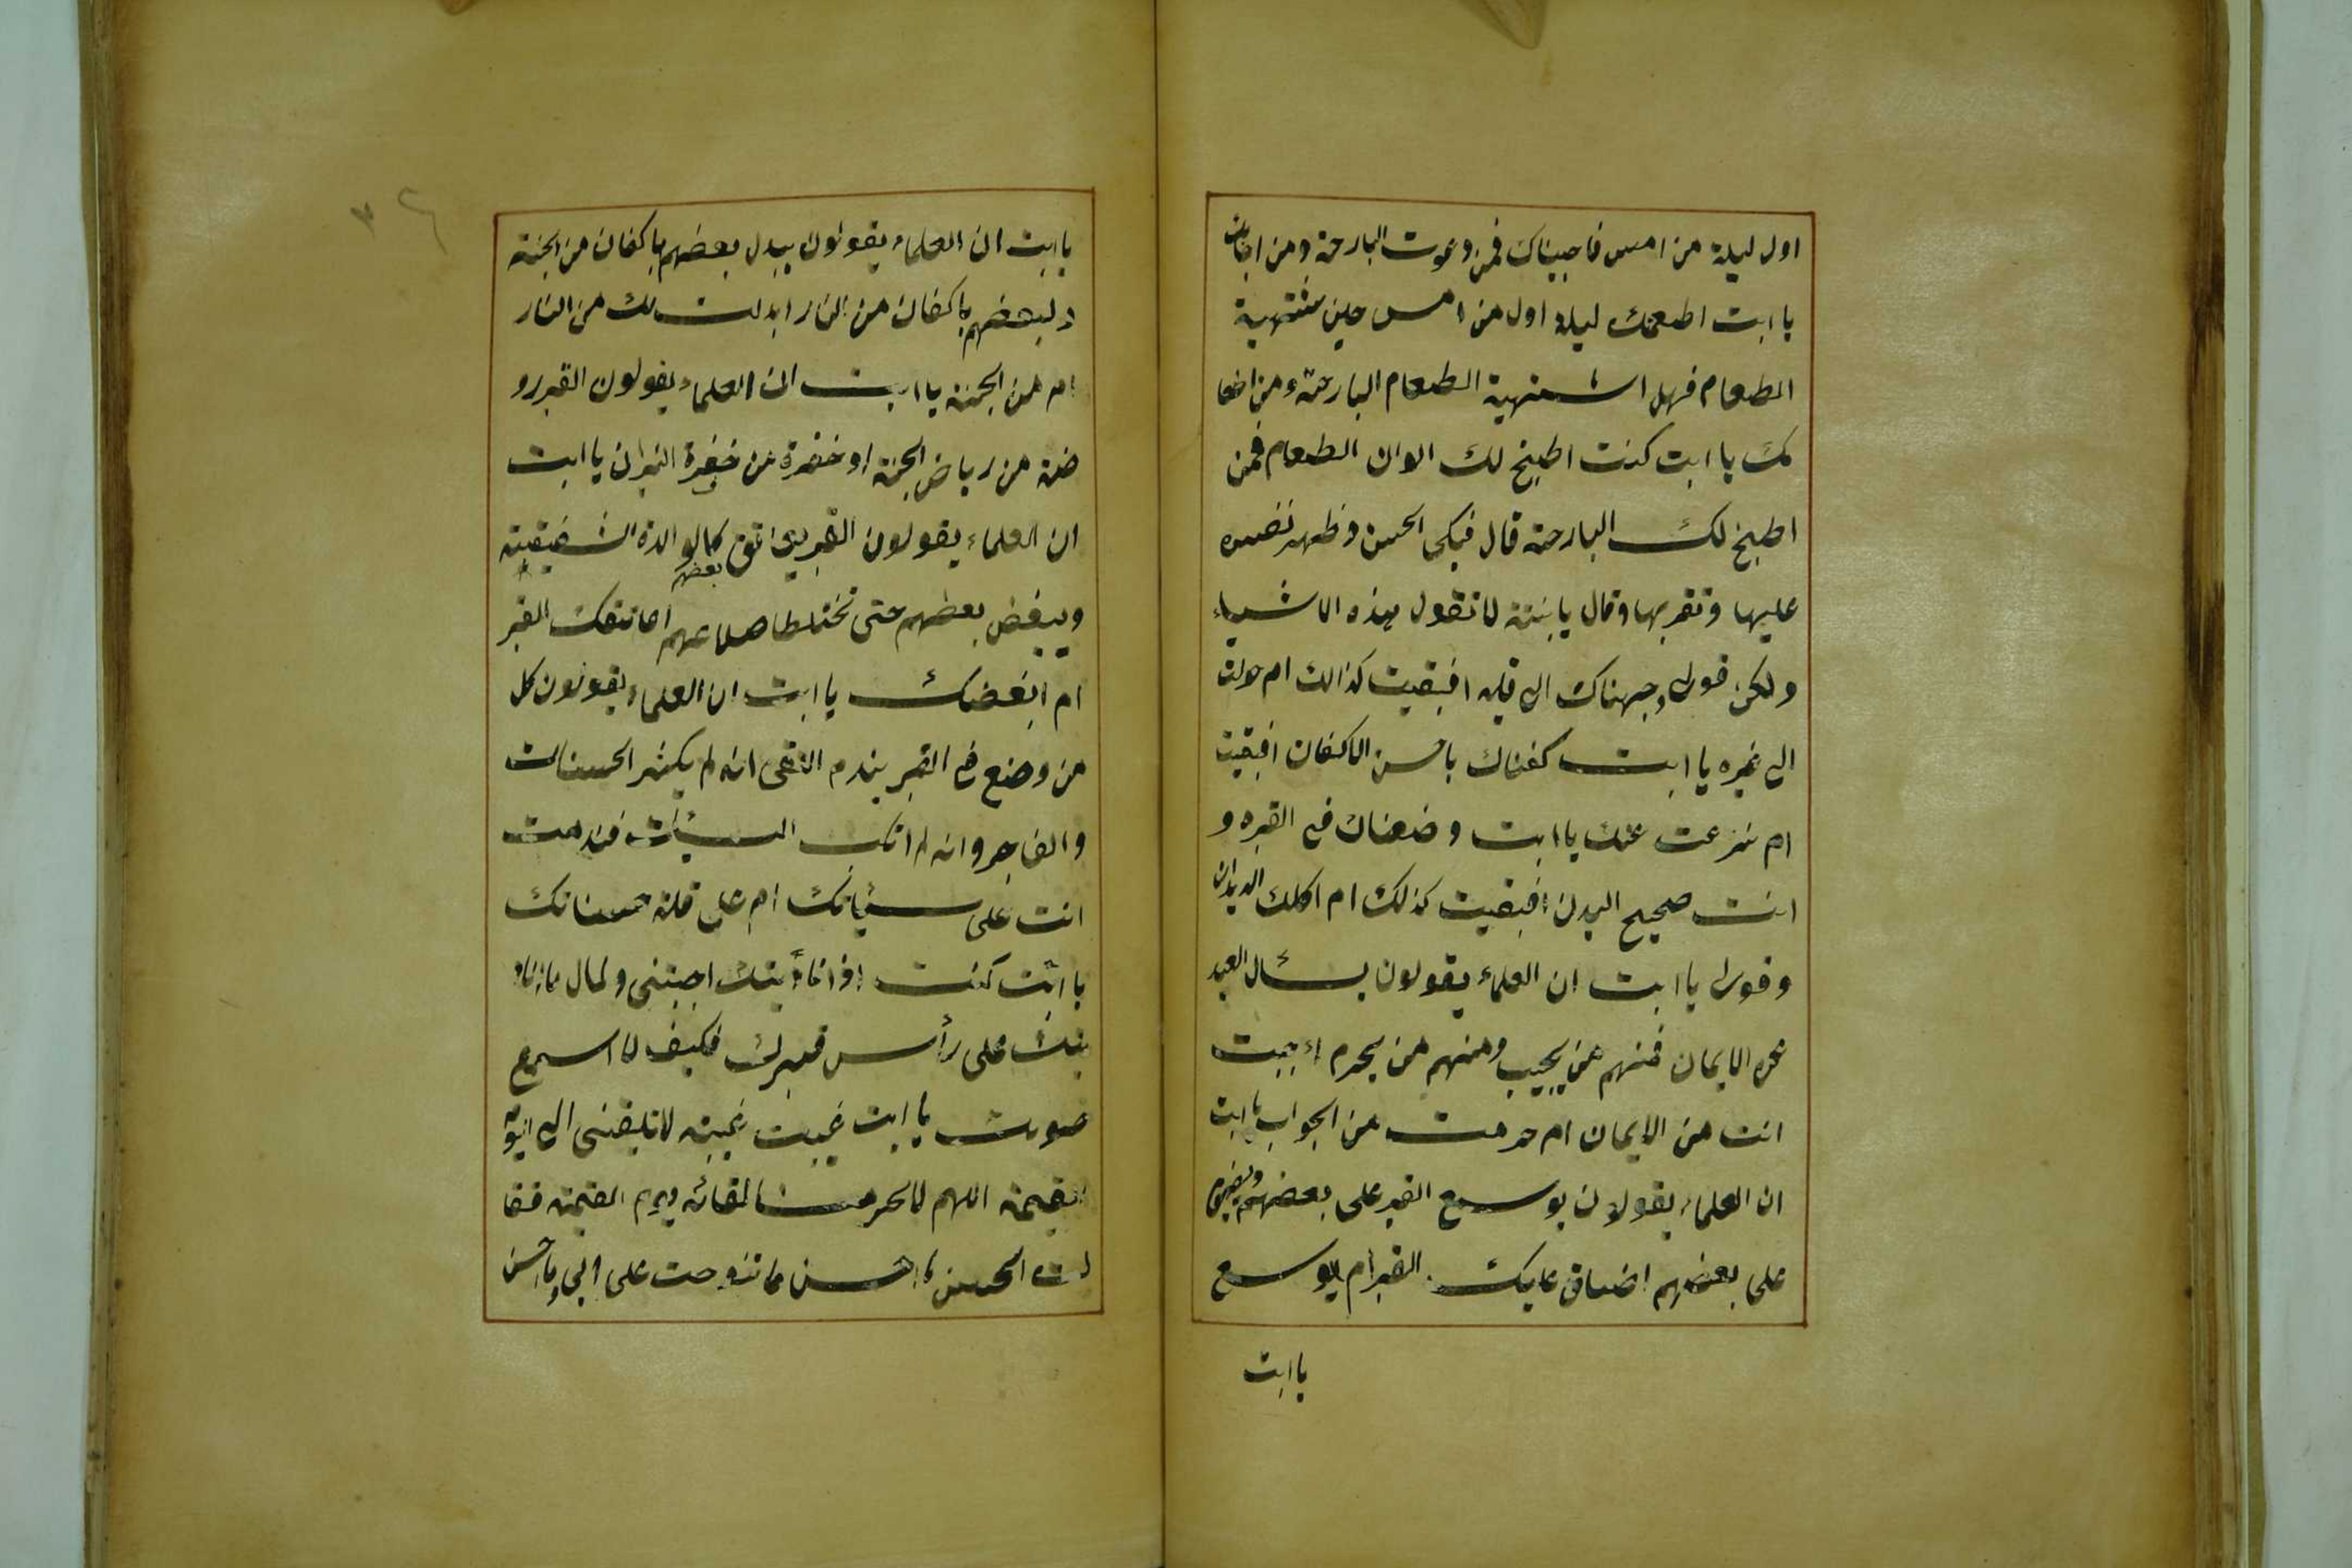 اول ليلة من امس فاجبيناك فمن دعوت البارحة ومن اجابت
يا ابت اطعمتك ليلة اول من امس حين شتهية
الطعام فهل اشتهية الطعام البارحة ومن اطعا
مك يا ابت كنت اطبخ لك الوان الطعام فمن
اطبخ لك البارحة قال فبكى الحسن وظهر نفسه
عليها وتقربها وقال يا بنية لا تقول هذه الاشياء
ولكن قولى وجهناك الى قبله افبقيت كذالك ام حولت
الى غيره يا ابت كفناك باحسن الاكفان افبقيت
ام نزعت عنك يا ابت وضعناك فى القبره و
انت صحيح البدن افبقيت كذلك ام اكلك الديدان
وقولى يا ابت ان العلماء يقولون يسئال العبد
عن الايمان فمنهم من يجيب ومنهم من يحرم اءجبت
انت من الايمان ام حرمت من الجواب يا ابت
ان العلماء يقولان يوسع القبر على بعضهم ويضيق
على بعضهم اضاق عليك القبر ام يوسع
يا ابت
يا ابت ان العلماء يقولون يبدل بعضهم باكفان من الجنة
و لبعضهم باكفان من النار ابدلت لك من النار
ام من الجنة يا ابت ان العلماء يقولون القبر رو
ضة من رياض الجنة او حفرة من حفرة النيران يا ابت
ان العلماء يقولون القبر يعانق بعضهم كالوالدة الشفيقية
ويبغض بعضهم حتى تختلط اضلاعهم اعانقك القبر
ام ابغضك يا ابت ان العلماء يقولون كل
من وضع فى القبر يندم التقى انه لم يكثر الحسنات
والفاجر وانه لم اتكب السيئات فندمت
انت على سيئاتك ام على قلة حسناتك
يا ابت كنت اذا ناديتك اجبتنى ولمال ما انا د
يتك على رأس قبرك فكيف لا اسمع
صوتك يا ابت غيبت غيبته لا تلقنى الى اليوم
القيمة اللهم لا تحرمنا لقائه يوم القيمة فقا
لت الحسن يا احسن ما تنوحت على ابى وما احسن